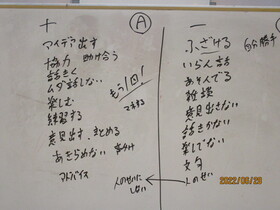 ＋
Ⓐ
－
アイデア出す
協力 助け合う
話きく
ムダ話しない
楽しむ
練習する
意見出す、まとめる
あきらめない
アドバイス
もう1回!
人のせいにしない
ふざける
自分勝手
いらん話
あそんでる
雑談
意見出さない
話きかない
楽しでない
文句
人のせい
2022/09/20